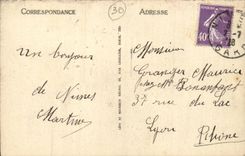 CORRESPONDANCE
ADRESSE
30
40
GARD
Un bonjour
de Nimes
Martin
Monsieur
Granger Maurice
chez Mr Bonnefont
37 rue du Lac
Lyon
Rhône